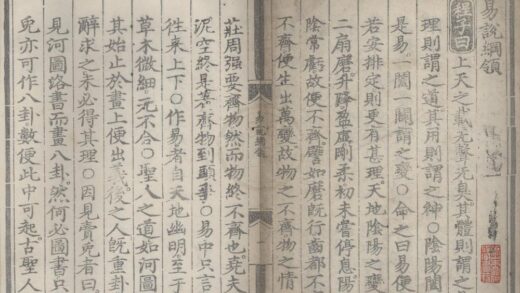 易說綱領
程子曰上天之載无聲无臭其體則謂之
理則謂之道其用則謂之神○陰陽闔
是易一闔一闢謂之變○命之曰易便
若安排定則更有甚理天地陰陽之變
二扇磨升降盈虛剛柔初未嘗停息陽
陰常虧故便不齊譬如磨旣行齒都不
不齊便生出萬變故物之不齊物之情
莊周强要齊物然而物終不齊也堯夫
泥空終是著齊物到頭爭○易中只言
徃來上下○作易者自天地幽明至于
草木微細无不合○聖人之道如河圖
其始止於畫上便出義後之人旣重卦
辭求之未必得其理○因見賣兔者曰
見河圖洛書而畫八卦然何必圖書只
兔亦可作八卦數便此中可起古聖人